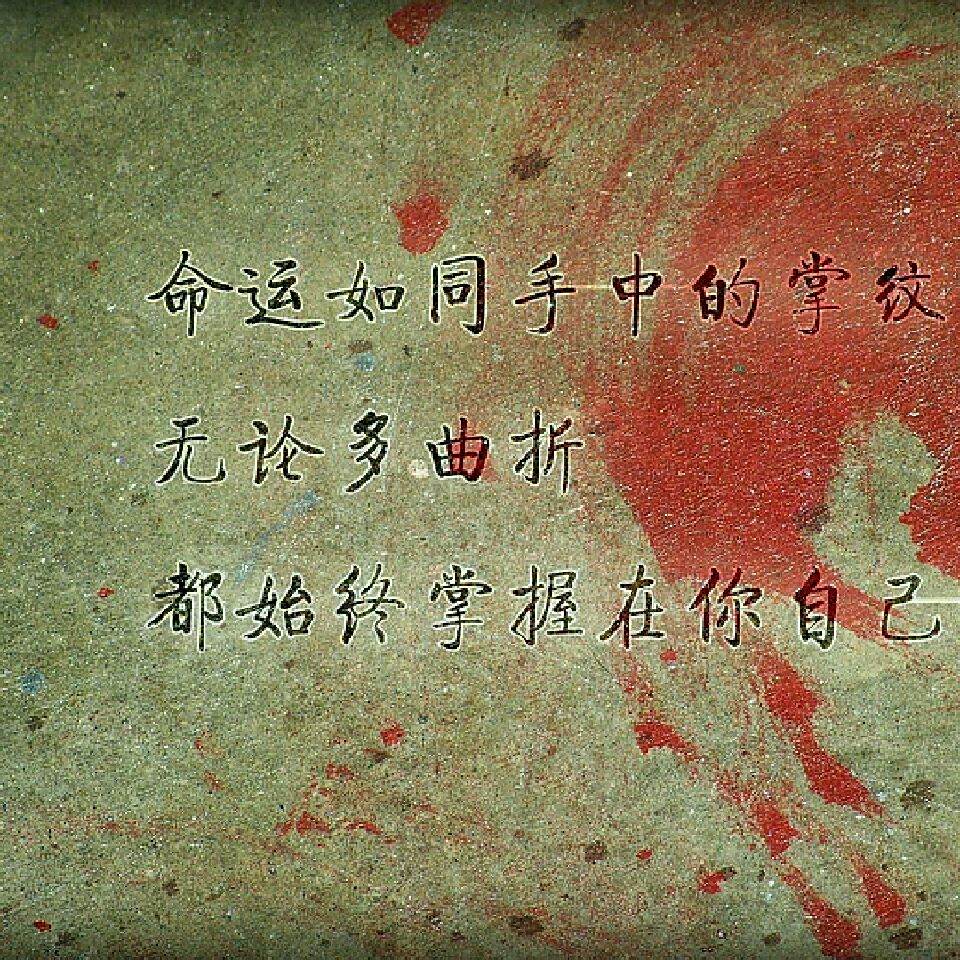 命运如同手中的掌纹
无论多曲折
都始终掌握在你自己